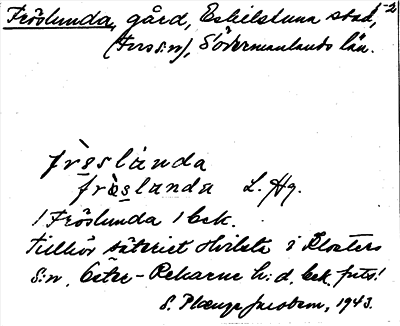 Fröslunda, gård, Eskilstuna stad,
(Fors s:n), Södermanlands län.
frɵslànda
frɵ̀slanda L. Hg.
/ Fröslunda / bek.
Tillhör säteriet Hvilsta i Klosters
s:n. Öster-Rekarne h:d. bek. futs!
S. Plænge Jacobson, 1943.